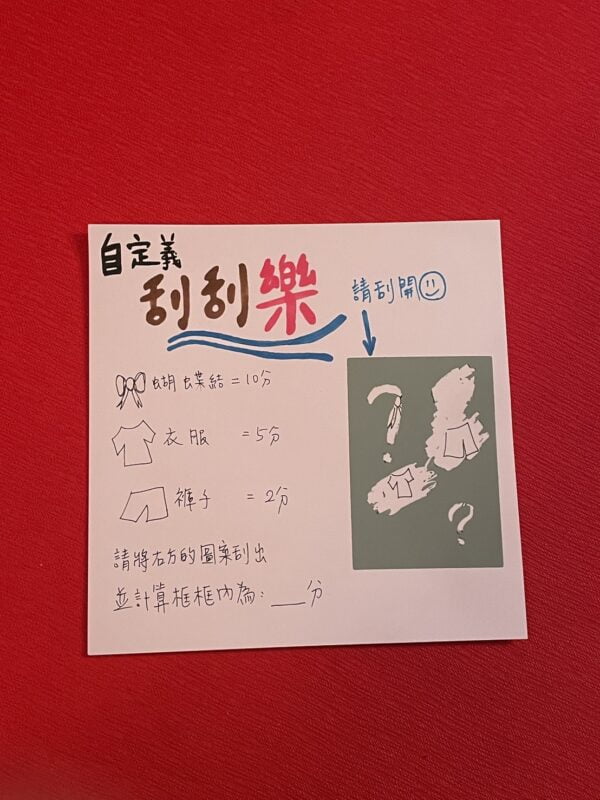 自定義
刮刮樂
請刮開
蝴蝶結=10分
衣服 =5分
褲子 =2分
請將右方的圖案刮出
並計算框框內為:___分
?
?